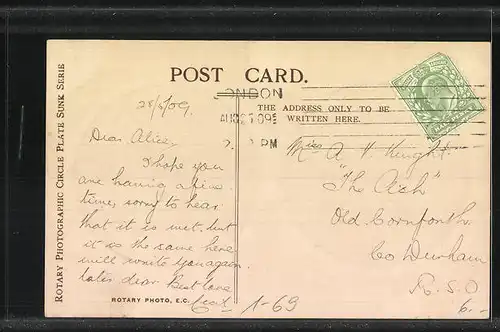 POST CARD.
LONDON
THE ADDRESS ONLY TO BE
WRITTEN HERE.
AUG 25 09
PM
28/8/09
Dear Alice,
I hope you
are having a fine
time, sorry to hear
that it is wet. but
it is the same here
will write you again
later dear. Best love
Miss A. V. Knight
"The Ash"
Old Cornforth
Co Durham
R.S.O
6.-
1-69
ROTARY PHOTO, E.C.
ROTARY PHOTOGRAPHIC CIRCLE PLATE SUNK SERIE